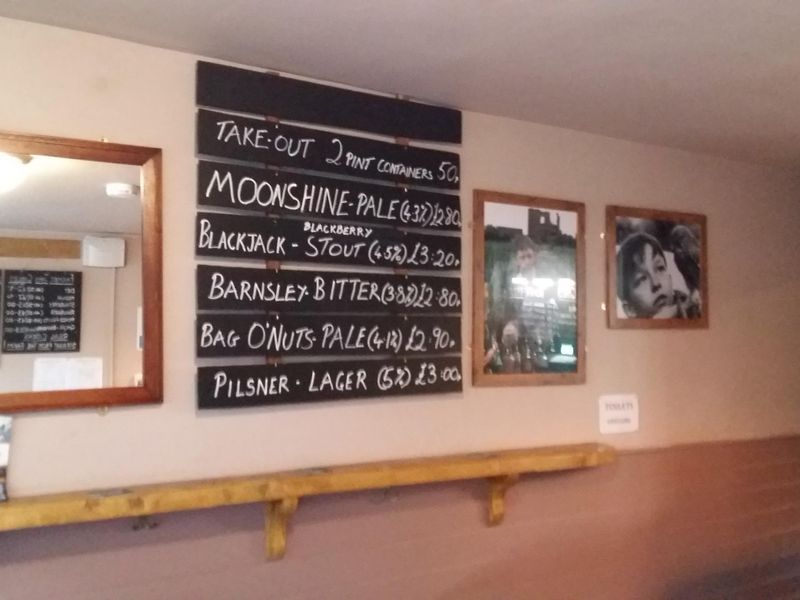 TAKE-OUT 2 PINT CONTAINERS 50p
MOONSHINE-PALE (4.3%) £2.80
BLACKBERRY
BLACKJACK - STOUT (4.5%) £3.20p
BARNSLEY-BITTER (3.8%) £2.80p
BAG O'NUTS-PALE (4.1%) £2.90p
PILSNER - LAGER (5%) £3.00p
TOILETS